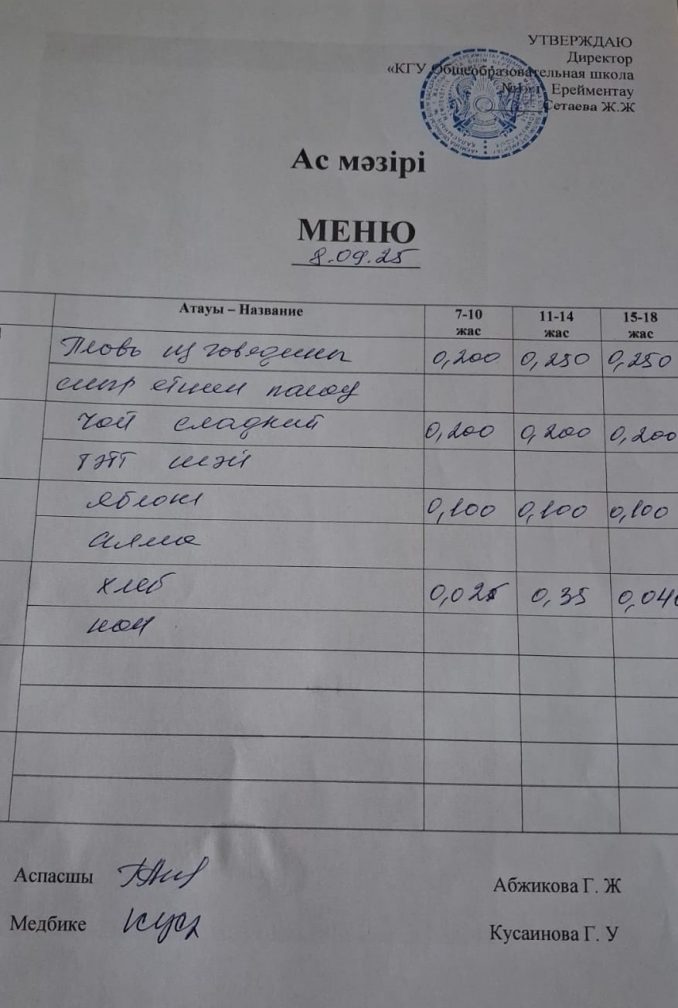 УТВЕРЖДАЮ
Директор
«КГУ Общеобразовательная школа
Ерейментау
Сетаева Ж.Ж
Ас мәзірі
МЕНЮ
8.09.25
Атауы – Название 7-10 жас 11-14 жас 15-18 жас
Пловь из говядины 0,200 0,250 0,250
сиыр етінен палау
Чай сладкий 0,200 0,200 0,200
тәтті шәй
яблоки 0,100 0,100 0,100
алма
хлеб 0,025 0,35 0,040
нан
Аспасшы Абжикова Г. Ж
Медбике Кусаинова Г. У